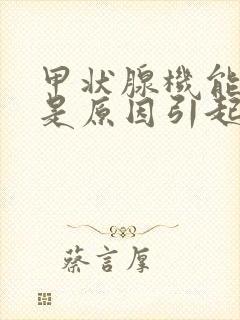 甲状腺機能
是原因引起
蔡言厚